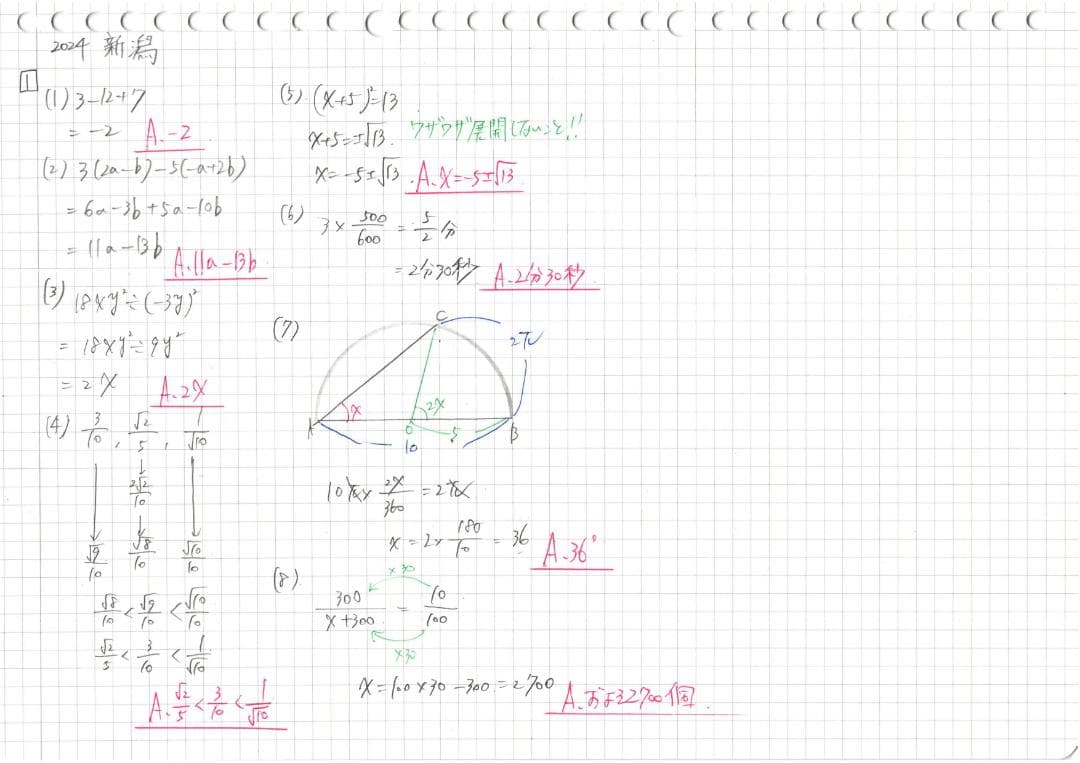 2024 新潟
1
(1) 3-12+7
= -2 A. -2
(2) 3(2a-b)-5(-a+2b)
= 6a-3b+5a-10b
= 11a-13b
A. 11a-13b
(3) 18xy²÷(-3y)²
= 18xy²÷9y²
= 2x A. 2x
(4) 3/10, √2/5, 1/√10
2√2/10
√9/10 √8/10 √10/10
√8/10 < √9/10 < √10/10
√2/5 < 3/10 < 1/√10
A. √2/5 < 3/10 < 1/√10
(5) (x+5)²=13
x+5=±√13 ワザワザ展開しないこと!!
x=-5±√13. A. x=-5±√13
(6) 3×500/600 = 5/2分
= 2分30秒 A. 2分30秒
(7)
C
2π
x 2x
A O 5 B
10
10π× 2x/360 = 2π
x = 2×180/10 = 36 A. 36°
(8)
×30
300/(x+300) = 10/100
×30
x=100×30-300=2700 A. およそ2700個